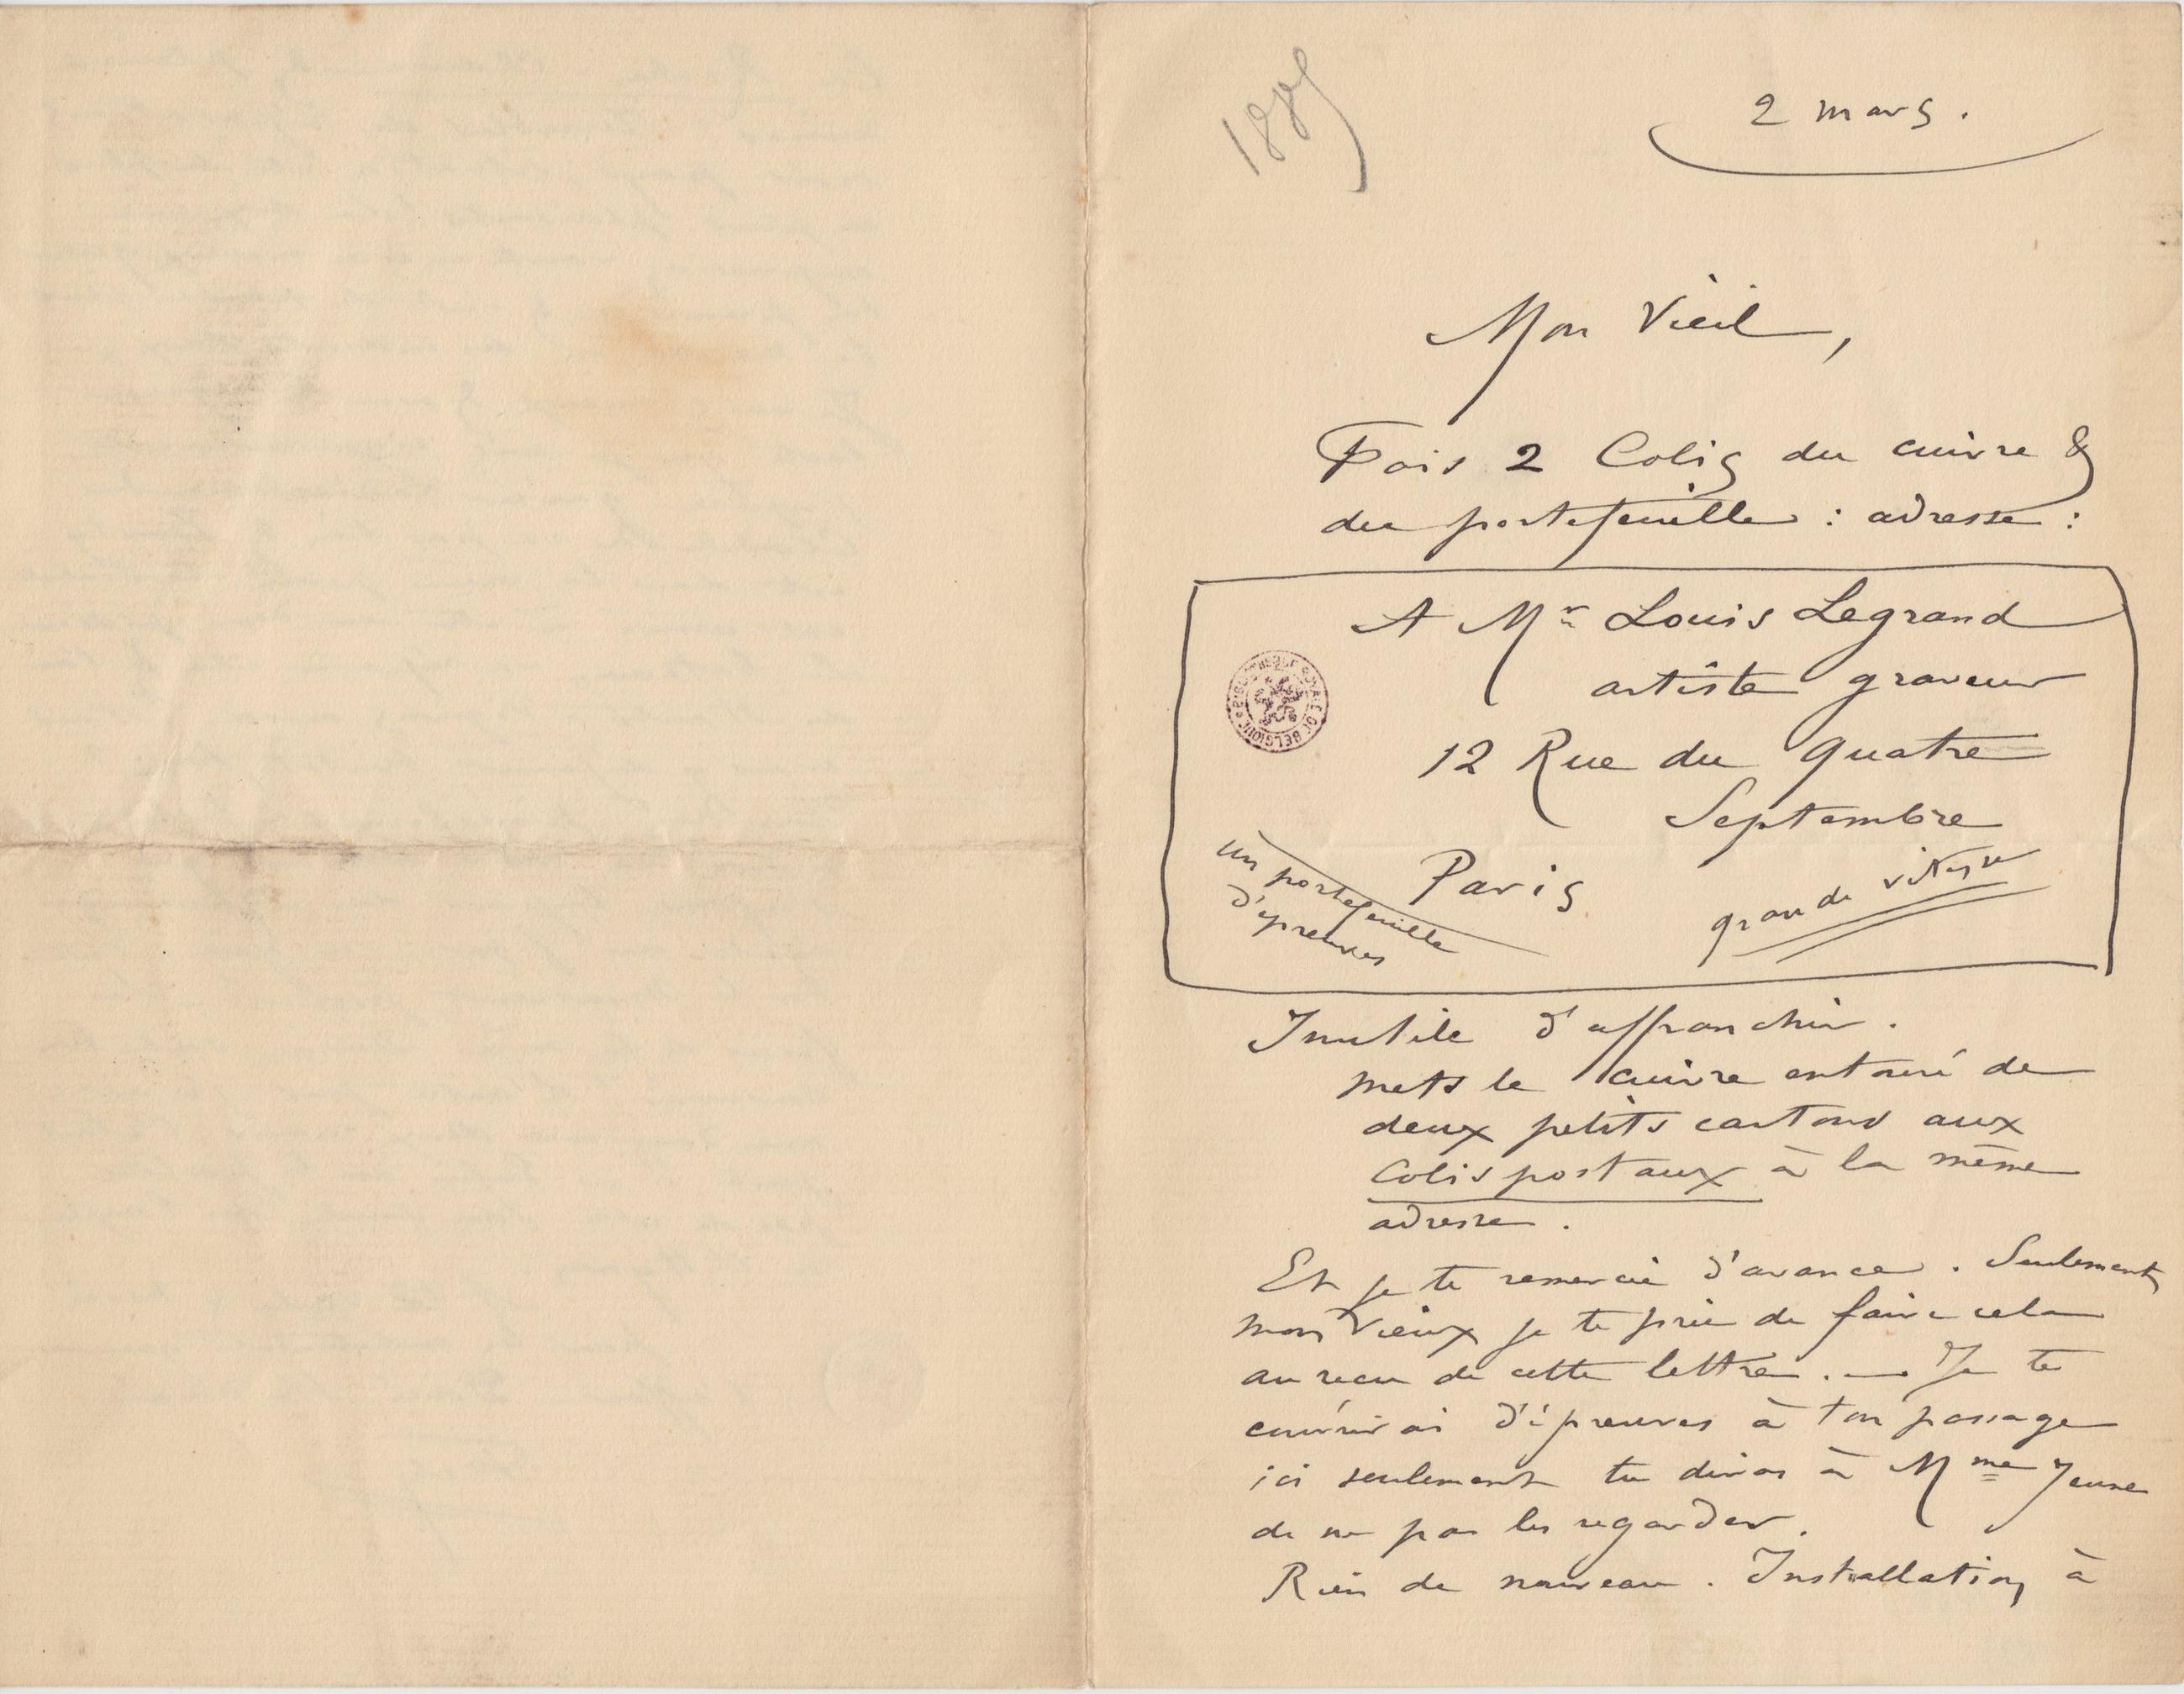 1889
2 mars.
Mon Vieil,
Fais 2 Colis du cuivre &
du portefeuille : adresse :
A Mr Louis Legrand
artiste graveur
12 Rue du Quatre
Septembre
Paris
un portefeuille
d'épreuves
grande vitesse
BIBLIOTHÈQUE ROYALE DE BELGIQUE
Inutile d'affranchir.
mets le cuivre entouré de
deux petits cartons aux
Colis postaux à la même
adresse.
Et je te remercie d'avance. Seulement
mon Vieux je te prie de faire cela
au reçu de cette lettre. — Je te
couvrirai d'épreuves à ton passage
ici seulement tu diras à Mme Jeune
de ne pas les regarder.
Rien de nouveau. Installation à